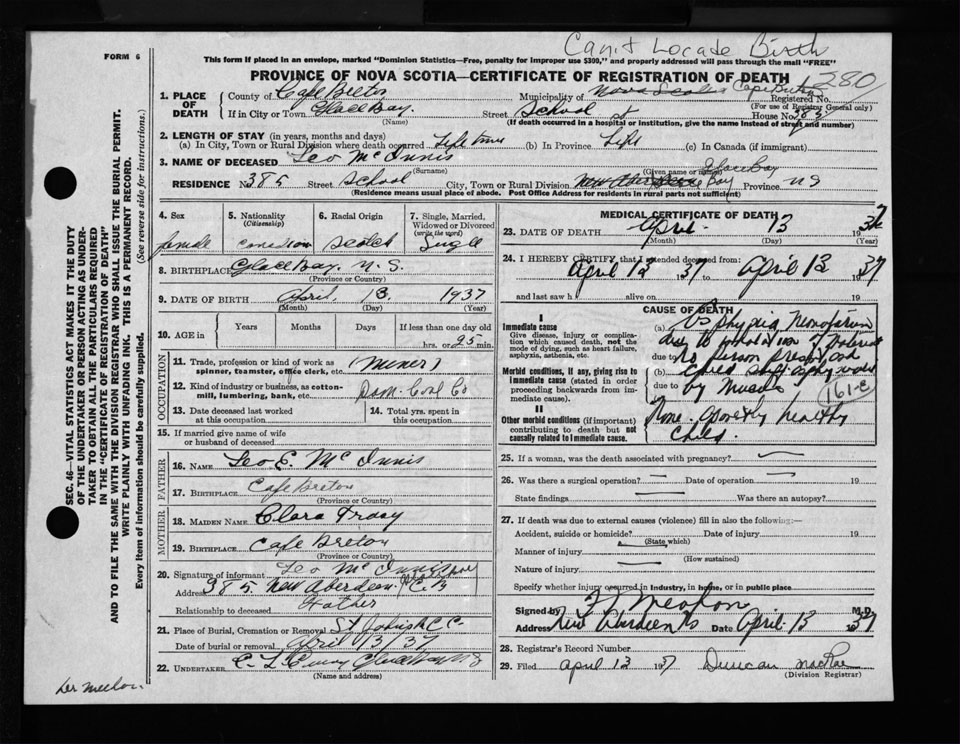 Can't Locate Birth
FORM 6
This form if placed in an envelope, marked "Dominion Statistics—Free, penalty for improper use $300," and properly addressed will pass through the mail "FREE"
PROVINCE OF NOVA SCOTIA—CERTIFICATE OF REGISTRATION OF DEATH
1280
1. PLACE OF DEATH
County of Cape Breton Municipality of Nova Scotia Cape Breton Registered No.
(For use of Registrar General only)
If in City or Town Glace Bay. Street School st House No. 385
(Name) (If death occurred in a hospital or institution, give the name instead of street and number)
2. LENGTH OF STAY (in years, months and days)
(a) In City, Town or Rural Division where death occurred Life time (b) In Province Life (c) In Canada (if immigrant)
3. NAME OF DECEASED Leo McInnis
(Surname) (Given name or names)
Glace Bay
RESIDENCE No. 385 Street School City, Town or Rural Division Bay Province N S
(Residence means usual place of abode. Post Office Address for residents in rural parts not sufficient)
4. Sex
female
5. Nationality
(Citizenship)
Canadian
6. Racial Origin
Scotch
7. Single, Married, Widowed or Divorced
(write the word)
Single
8. BIRTHPLACE Glace Bay. N. S.
(Province or Country)
9. DATE OF BIRTH April, 13. 1937
(Month) (Day) (Year)
10. AGE in Years Months Days If less than one day old
hrs. or 25 min.
OCCUPATION
11. Trade, profession or kind of work as spinner, teamster, office clerk, etc. (Miner)
12. Kind of industry or business, as cotton-mill, lumbering, bank, etc. Dom. Coal Co
13. Date deceased last worked at this occupation
14. Total yrs. spent in this occupation
15. If married give name of wife or husband of deceased
FATHER
16. NAME Leo E. McInnis
17. BIRTHPLACE Cape Breton
(Province or Country)
MOTHER
18. MAIDEN NAME Clara Tracy
19. BIRTHPLACE Cape Breton
(Province or Country)
20. Signature of informant Leo McInnis
Address 385. New Aberdeen C.B
Relationship to deceased Father
21. Place of Burial, Cremation or Removal St
Date of burial or removal April 13/37
22. UNDERTAKER
(Name and address)
MEDICAL CERTIFICATE OF DEATH
23. DATE OF DEATH April. 13 1937
(Month) (Day) (Year)
24. I HEREBY CERTIFY that I attended deceased from:
April 13 1937 to April 13 1937
and last saw h alive on 19
CAUSE OF DEATH
I
Immediate cause
Give disease, injury or complication which caused death, not the mode of dying, such as heart failure, asphyxia, asthenia, etc.
Morbid conditions, if any, giving rise to immediate cause (stated in order proceeding backwards from immediate cause).
II
Other morbid conditions (if important) contributing to death but not causally related to immediate cause.
(a) Asphyxia Neonatorum
due to inhalation of
due to no person present and
(b) child
due to by Mucus
161-c
None. apparently healthy
child.
25. If a woman, was the death associated with pregnancy?
26. Was there a surgical operation? Date of operation 19
State findings Was there an autopsy?
27. If death was due to external causes (violence) fill in also the following:—
Accident, suicide or homicide? Date of injury 19
(State which)
Manner of injury
(How sustained)
Nature of injury
Specify whether injury occurred in industry, in home, or in public place
Signed by M.D.
Address New Aberdeen NS Date April 13 1937
28. Registrar's Record Number
29. Filed April 13 1937 Duncan MacRae
(Division Registrar)
SEC. 46—VITAL STATISTICS ACT MAKES IT THE DUTY OF THE UNDERTAKER OR PERSON ACTING AS UNDERTAKER TO OBTAIN ALL THE PARTICULARS REQUIRED IN THE "CERTIFICATE OF REGISTRATION OF DEATH" AND TO FILE THE SAME WITH THE DIVISION REGISTRAR WHO SHALL ISSUE THE BURIAL PERMIT.
WRITE PLAINLY WITH UNFADING INK. THIS IS A PERMANENT RECORD.
Every item of information should be carefully supplied. (See reverse side for instructions.)